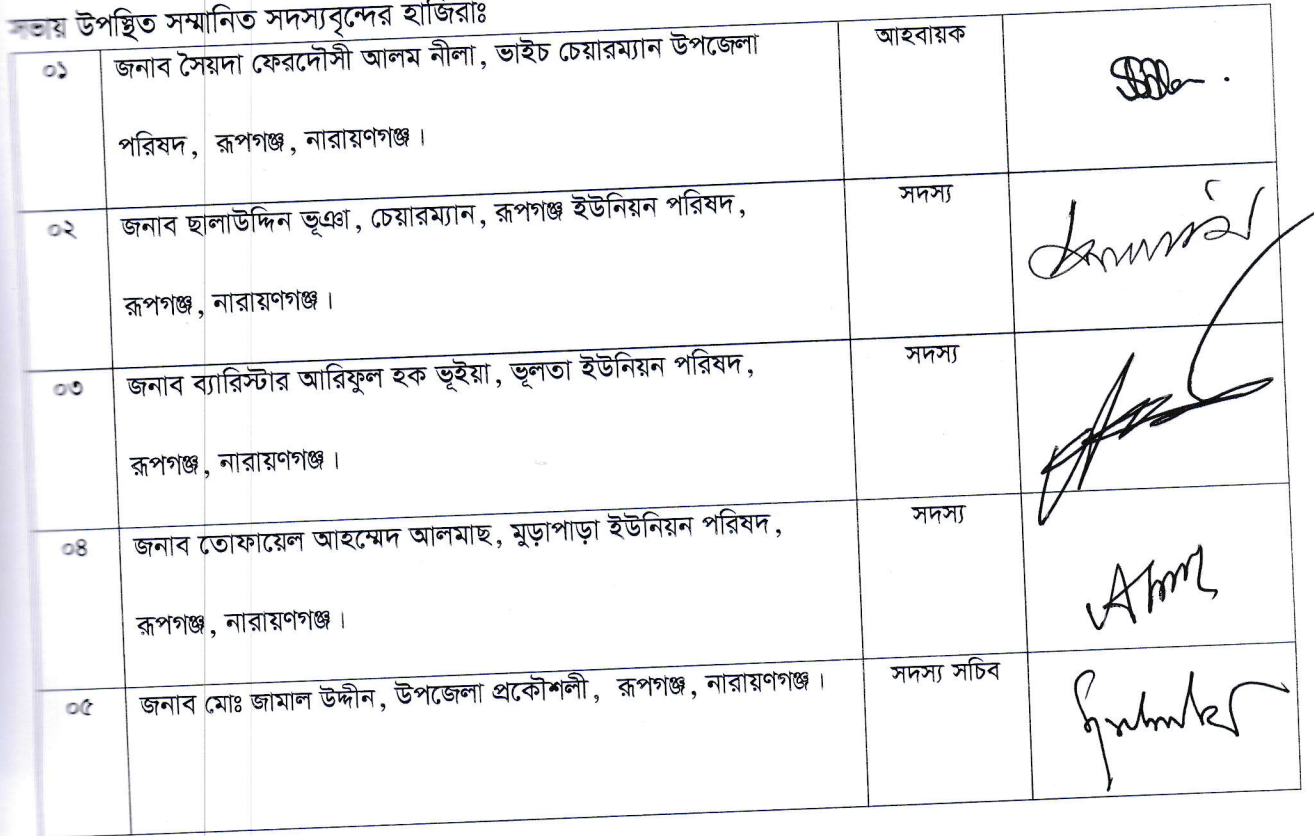 সভায় উপস্থিত সম্মানিত সদস্যবৃন্দের হাজিরাঃ
০১ জনাব সৈয়দা ফেরদৌসী আলম নীলা, ভাইচ চেয়ারম্যান উপজেলা আহবায়ক
পরিষদ, রূপগঞ্জ, নারায়ণগঞ্জ।
০২ জনাব ছালাউদ্দিন ভূঞা, চেয়ারম্যান, রূপগঞ্জ ইউনিয়ন পরিষদ, সদস্য
রূপগঞ্জ, নারায়ণগঞ্জ।
০৩ জনাব ব্যারিস্টার আরিফুল হক ভূইয়া, ভূলতা ইউনিয়ন পরিষদ, সদস্য
রূপগঞ্জ, নারায়ণগঞ্জ।
০৪ জনাব তোফায়েল আহম্মেদ আলমাছ, মুড়াপাড়া ইউনিয়ন পরিষদ, সদস্য
রূপগঞ্জ, নারায়ণগঞ্জ।
০৫ জনাব মোঃ জামাল উদ্দীন, উপজেলা প্রকৌশলী, রূপগঞ্জ, নারায়ণগঞ্জ। সদস্য সচিব